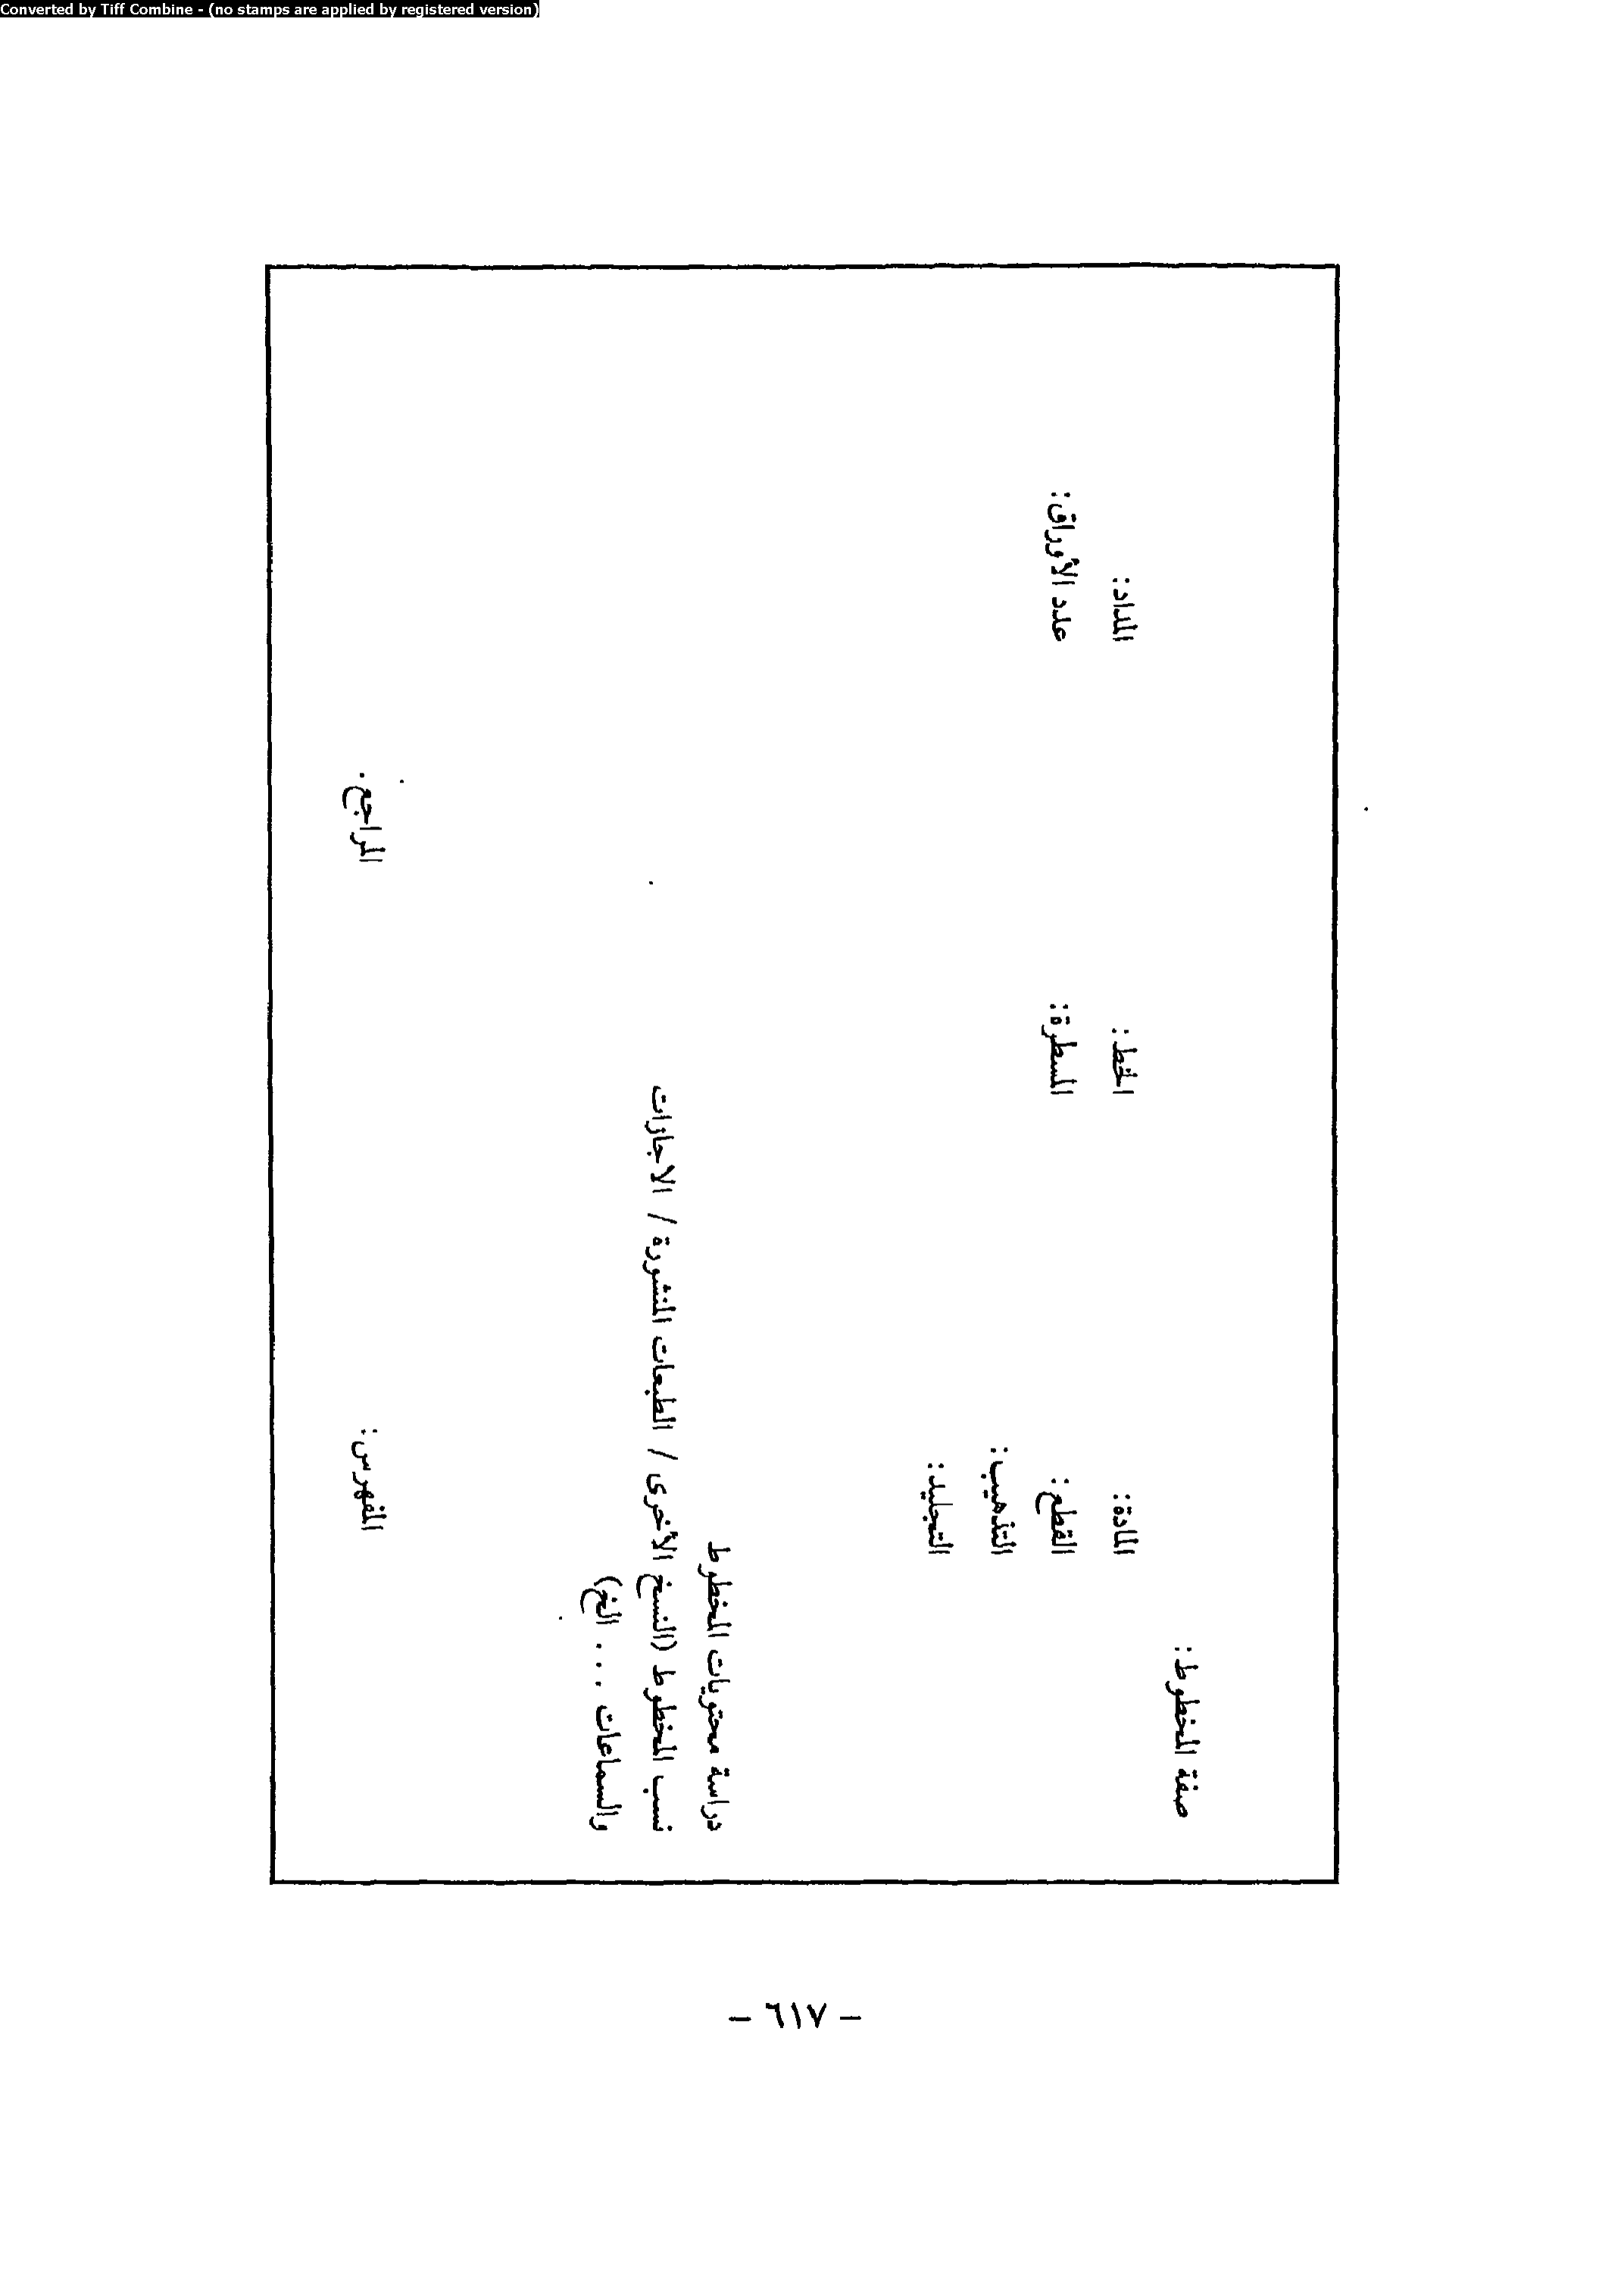 Converted by Tiff Combine - (no stamps are applied by registered version)
صفة المخطوط:
المادة: الخط: المداد:
القطع: المسطرة: عدد الأوراق:
التذهيب:
التجليد:
دراسة محتويات المخطوط
نسب المخطوط (النسخ الأخرى / الطبعات المنشورة / الاجازات
والسماعات . . . الخ)
المفهرس: المراجع.
- ٦١٧ -